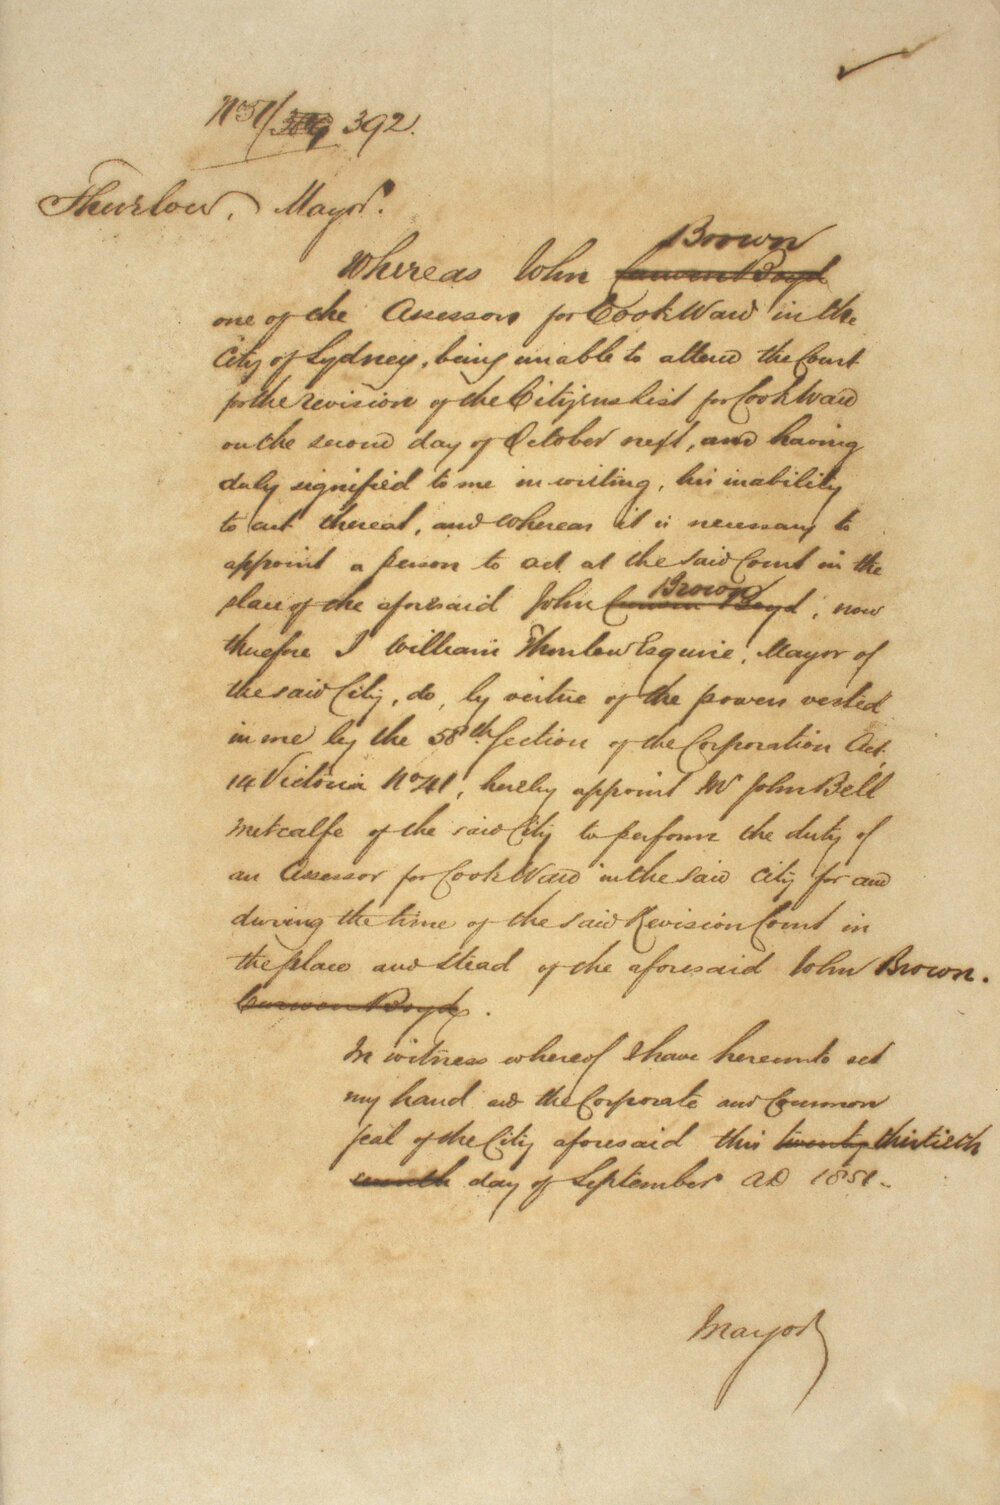 No 51/ 392.
Thurlow, Mayor.
Brown
Whereas John Boyd
one of the Assessors for Cook Ward in the
City of Sydney, being unable to attend the Court
for the revision of the Citizens List for Cook Ward
on the second day of October next, and having
duly signified to me in writing, his inability
to act thereat, and whereas it is necessary to
appoint a person to act at the said Court in the
Brown
place of the aforesaid John Boyd, now
therefore I William Thurlow Esquire, Mayor of
the said City, do, by virtue of the powers vested
in me by the 58th Section of the Corporation Act,
14 Victoria No 41, hereby appoint Mr John Bell
Metcalfe of the said City to perform the duty of
an Assessor for Cook Ward in the said City for and
during the time of the said Revision Court in
the place and stead of the aforesaid John Brown.
Boyd.
In witness whereof I have hereunto set
my hand and the Corporate and Common
seal of the City aforesaid this twenty thirtieth
seventh day of September AD 1851.
Mayor